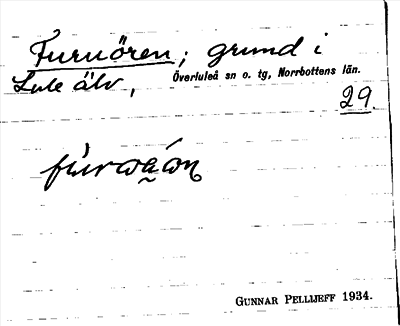 Furuören; grund i
Lule älv, Överluleå sn o. tg, Norrbottens län.
29.
GUNNAR PELLIJEFF 1934.